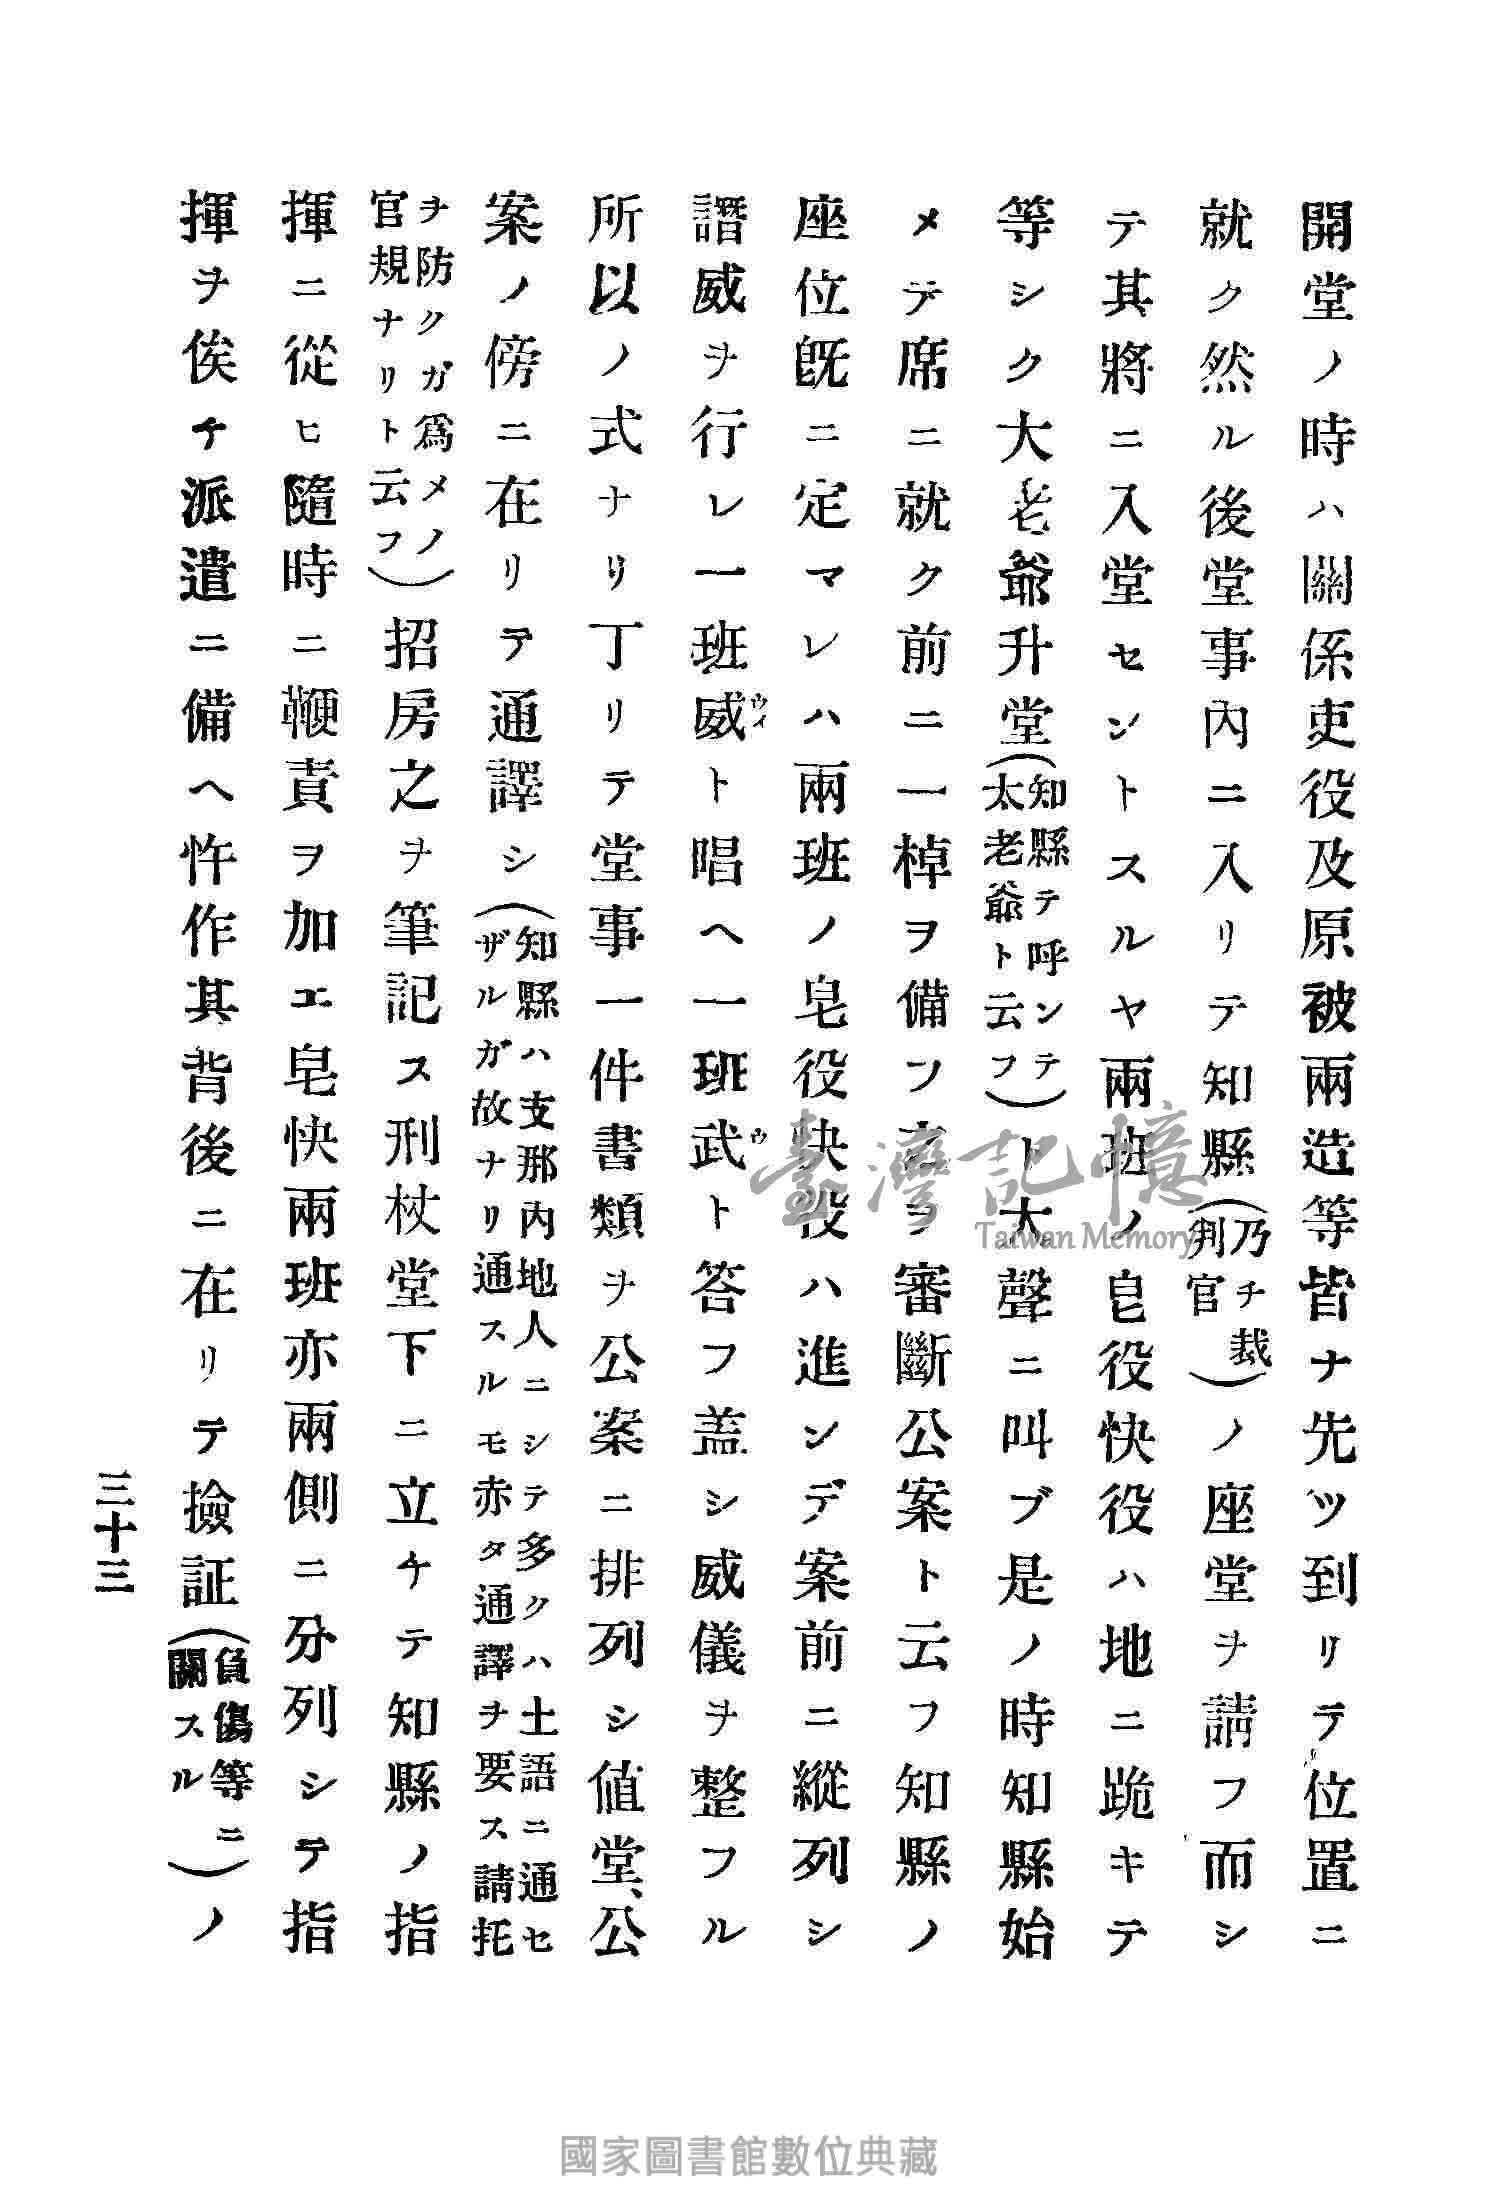 開堂ノ時ハ關係吏役及原被兩造等皆ナ先ツ到リテ位置ニ
就ク然ル後堂事內ニ入リテ知縣(乃チ裁判官)ノ座堂ヲ請フ而シ
テ其將ニ入堂セントスルヤ兩班ノ皂役快役ハ地ニ跪キテ
等シク大老爺升堂(知縣テ呼ンテ太老爺ト云フ)ト大聲ニ叫ブ是ノ時知縣始
メテ席ニ就ク前ニ一棹ヲ備フ之ヲ審斷公案ト云フ知縣ノ
座位旣ニ定マレハ兩班ノ皂役快役ハ進ンデ案前ニ縱列シ
諧威ヲ行レ一班威ト唱ヘ一班武ト答フ盖シ威儀ヲ整フル
ウイ
ウ
所以ノ式ナリ丁リテ堂事一件書類ヲ公案ニ排列シ值堂、公
案ノ傍ニ在リテ通譯シ(知縣ハ支那內地人ニシテ多クハ土語ニ通セザルガ故ナリ通スルモ赤タ通譯ヲ要ス請托
ヲ防クガ爲メノ官規ナリト云フ)招房之ヲ筆記ス刑杖堂下ニ立ケテ知縣ノ指
揮ニ從ヒ隨時ニ鞭責ヲ加エ皂快兩班亦兩側ニ分列シテ指
揮ヲ俟チ派遣ニ備ヘ忤作其背後ニ在リテ撿証(負傷等ニ關スル)ノ
三十三
臺灣記憶
Taiwan Memory
國家圖書館數位典藏